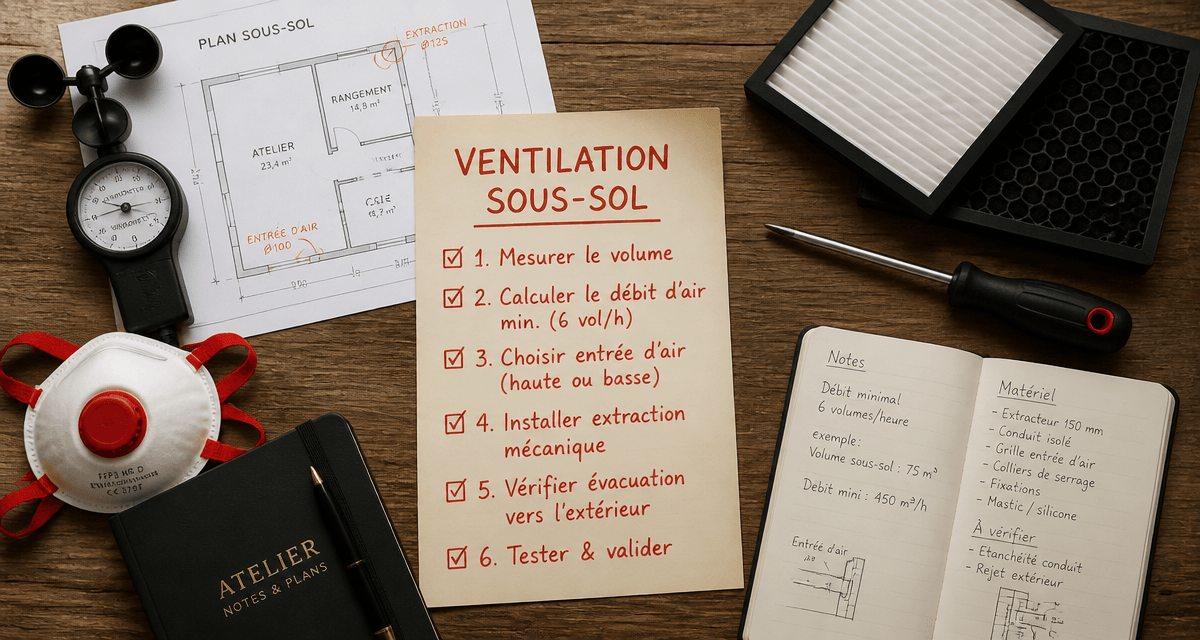 PLAN SOUS-SOL
EXTRACTION
Ø125
RANGEMENT
14,8 m²
ATELIER
23,4 m²
ENTRÉE D'AIR
Ø100
VENTILATION
SOUS-SOL
1. Mesurer le volume
2. Calculer le débit d'air
min. (6 vol/h)
3. Choisir entrée d'air
(haute ou basse)
4. Installer extraction
mécanique
5. Vérifier évacuation
vers l'extérieur
6. Tester & valider
ATELIER
NOTES & PLANS
Notes
Débit minimal
6 volumes/heure
exemple:
Volume sous-sol : 75 m³
Débit mini : 450 m³/h
Entrée d'air
Matériel
- Extracteur 150 mm
- Conduit isolé
- Grille entrée d'air
- Colliers de serrage
- Fixations
- Mastic / silicone
À vérifier
- Etanchéité conduit
- Rejet extérieur